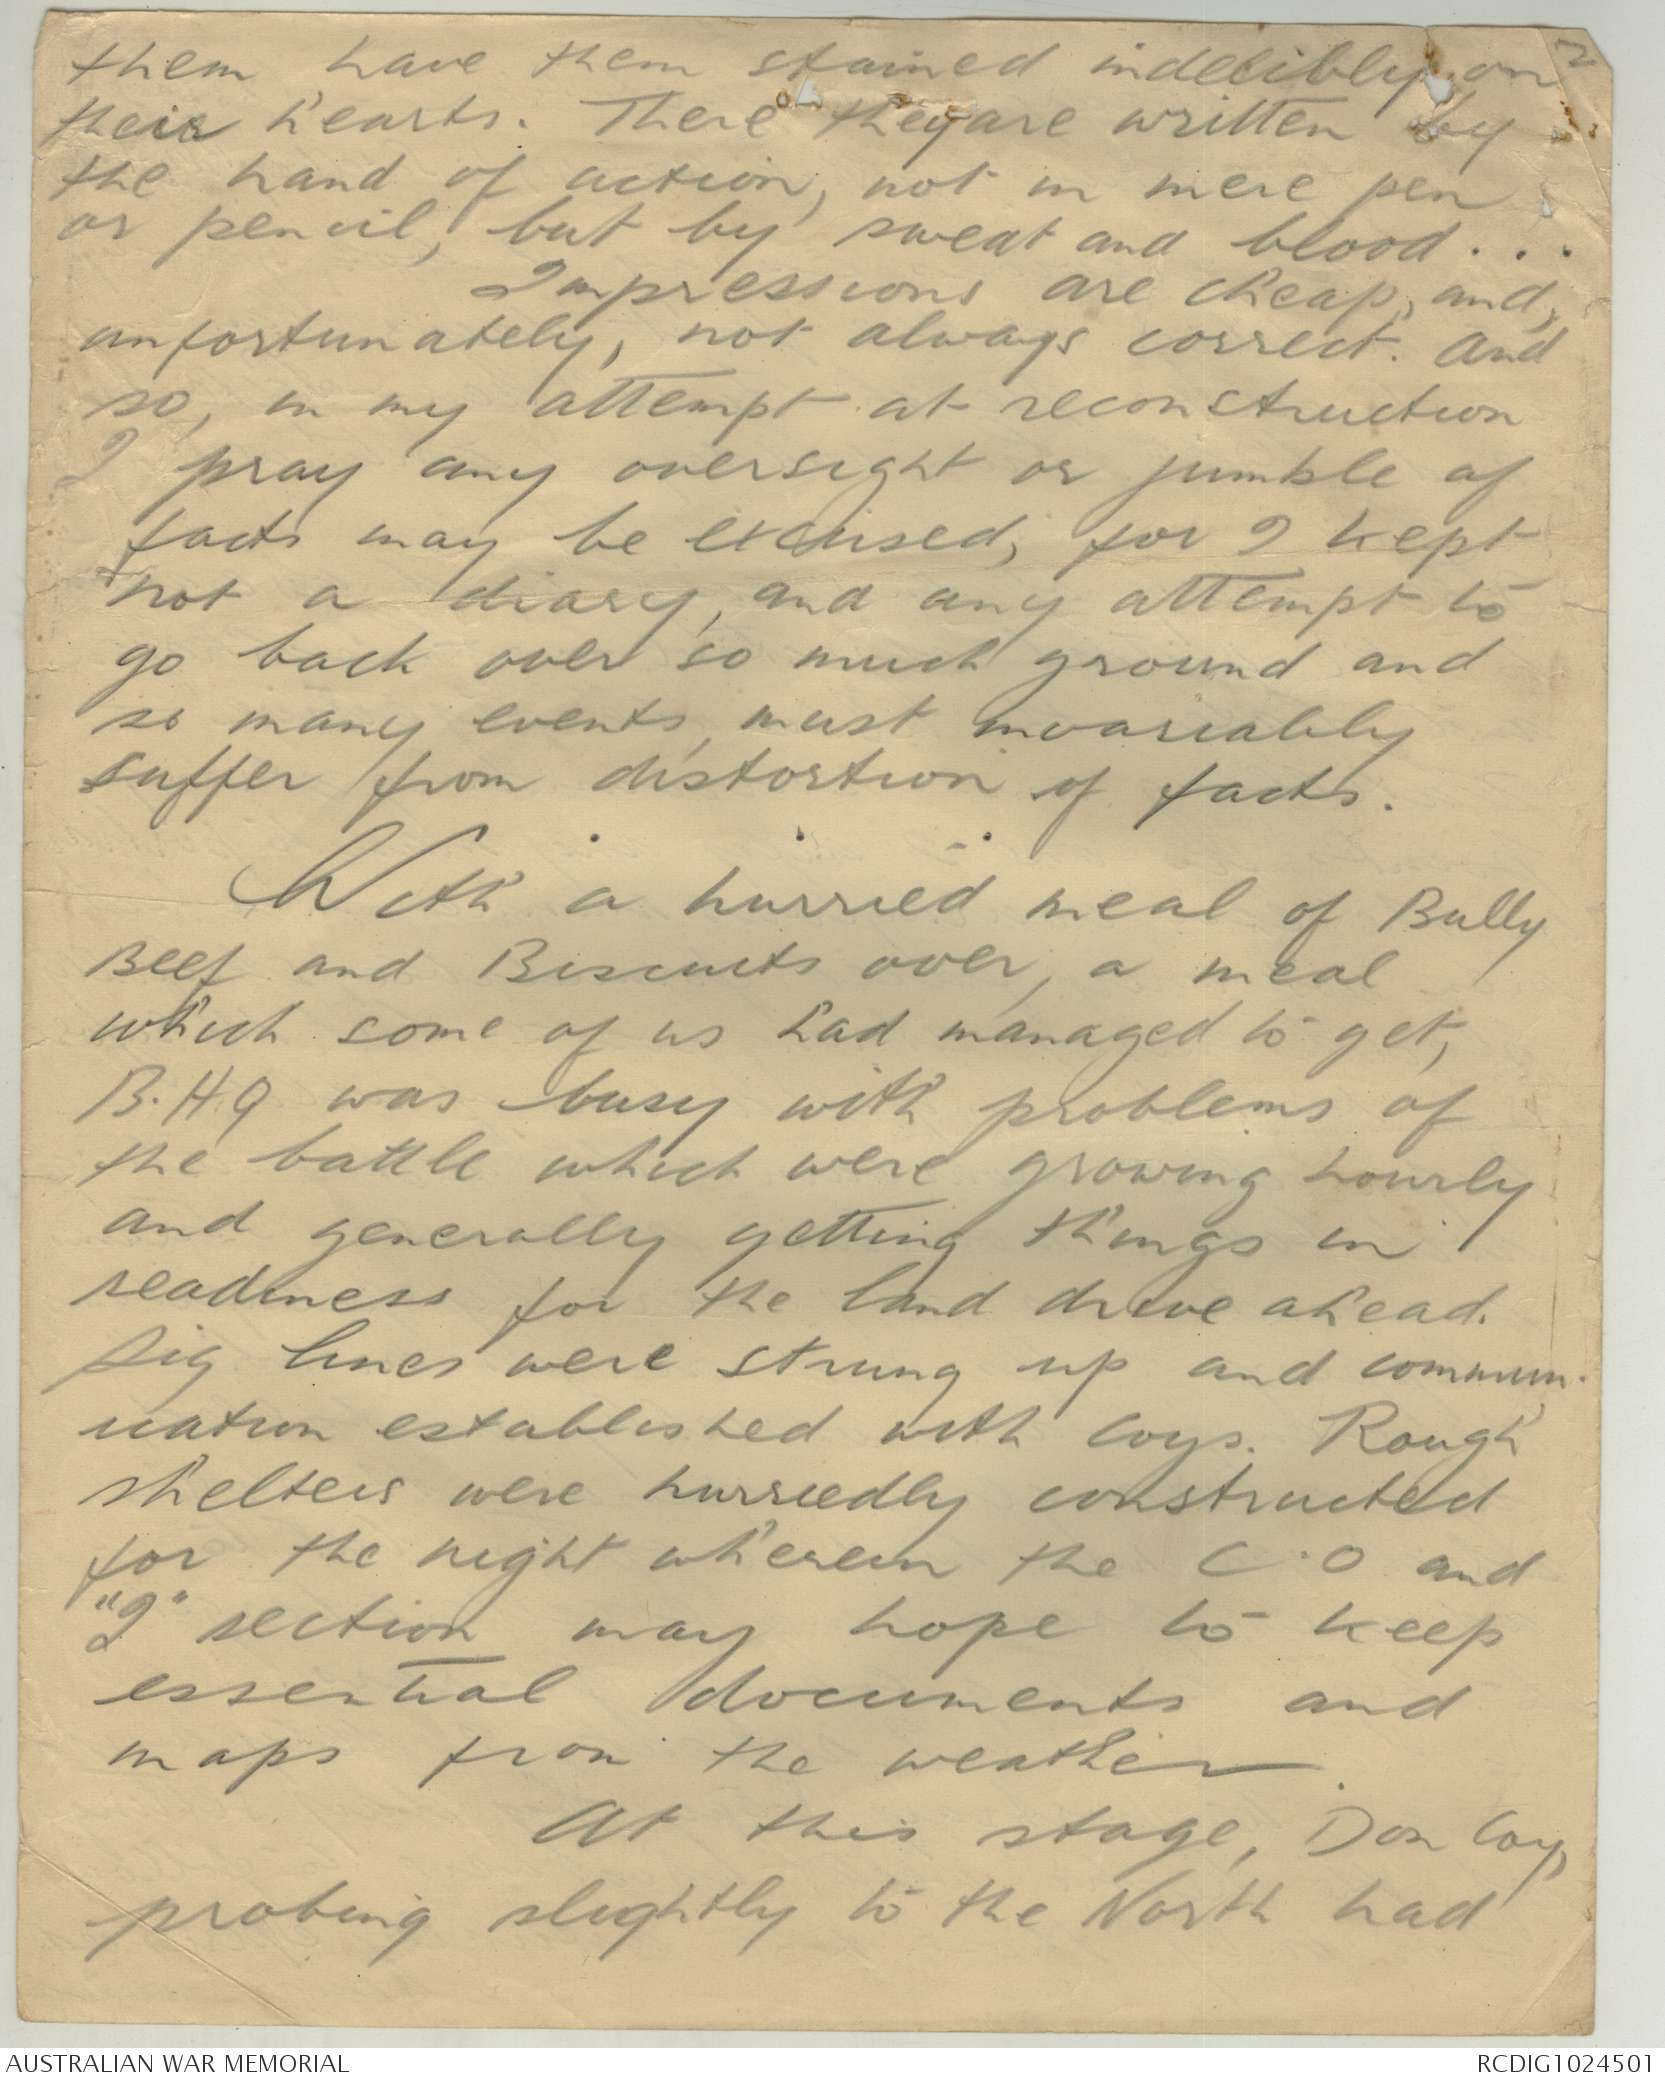 2
them have them stained indelibly on
their hearts. There they are written by
the hand of action, not in mere pen
or pencil, but by sweat and blood...
Impressions are cheap, and,
unfortunately, not always correct. And
so, in my attempt at reconstruction
I pray any oversight or jumble of
facts may be excused, for I kept
not a diary, and any attempt to
go back over so much ground and
so many events, must invariably
suffer from distortion of facts.
. . .
With a hurried meal of Bully
Beef and Biscuits over, a meal
which some of us had managed to get,
B.HQ was busy with problems of
the battle which were growing hourly
and generally getting things in
readiness for the land drive ahead.
Sig lines were strung up and commun-
ication established with Coys. Rough
shelters were hurriedly constructed
for the night wherein the C.O and
"I" section may hope to keep
essential documents and
maps from the weather.
At this stage, Don Coy,
probing slightly to the North had
AUSTRALIAN WAR MEMORIAL
RCDIG1024501